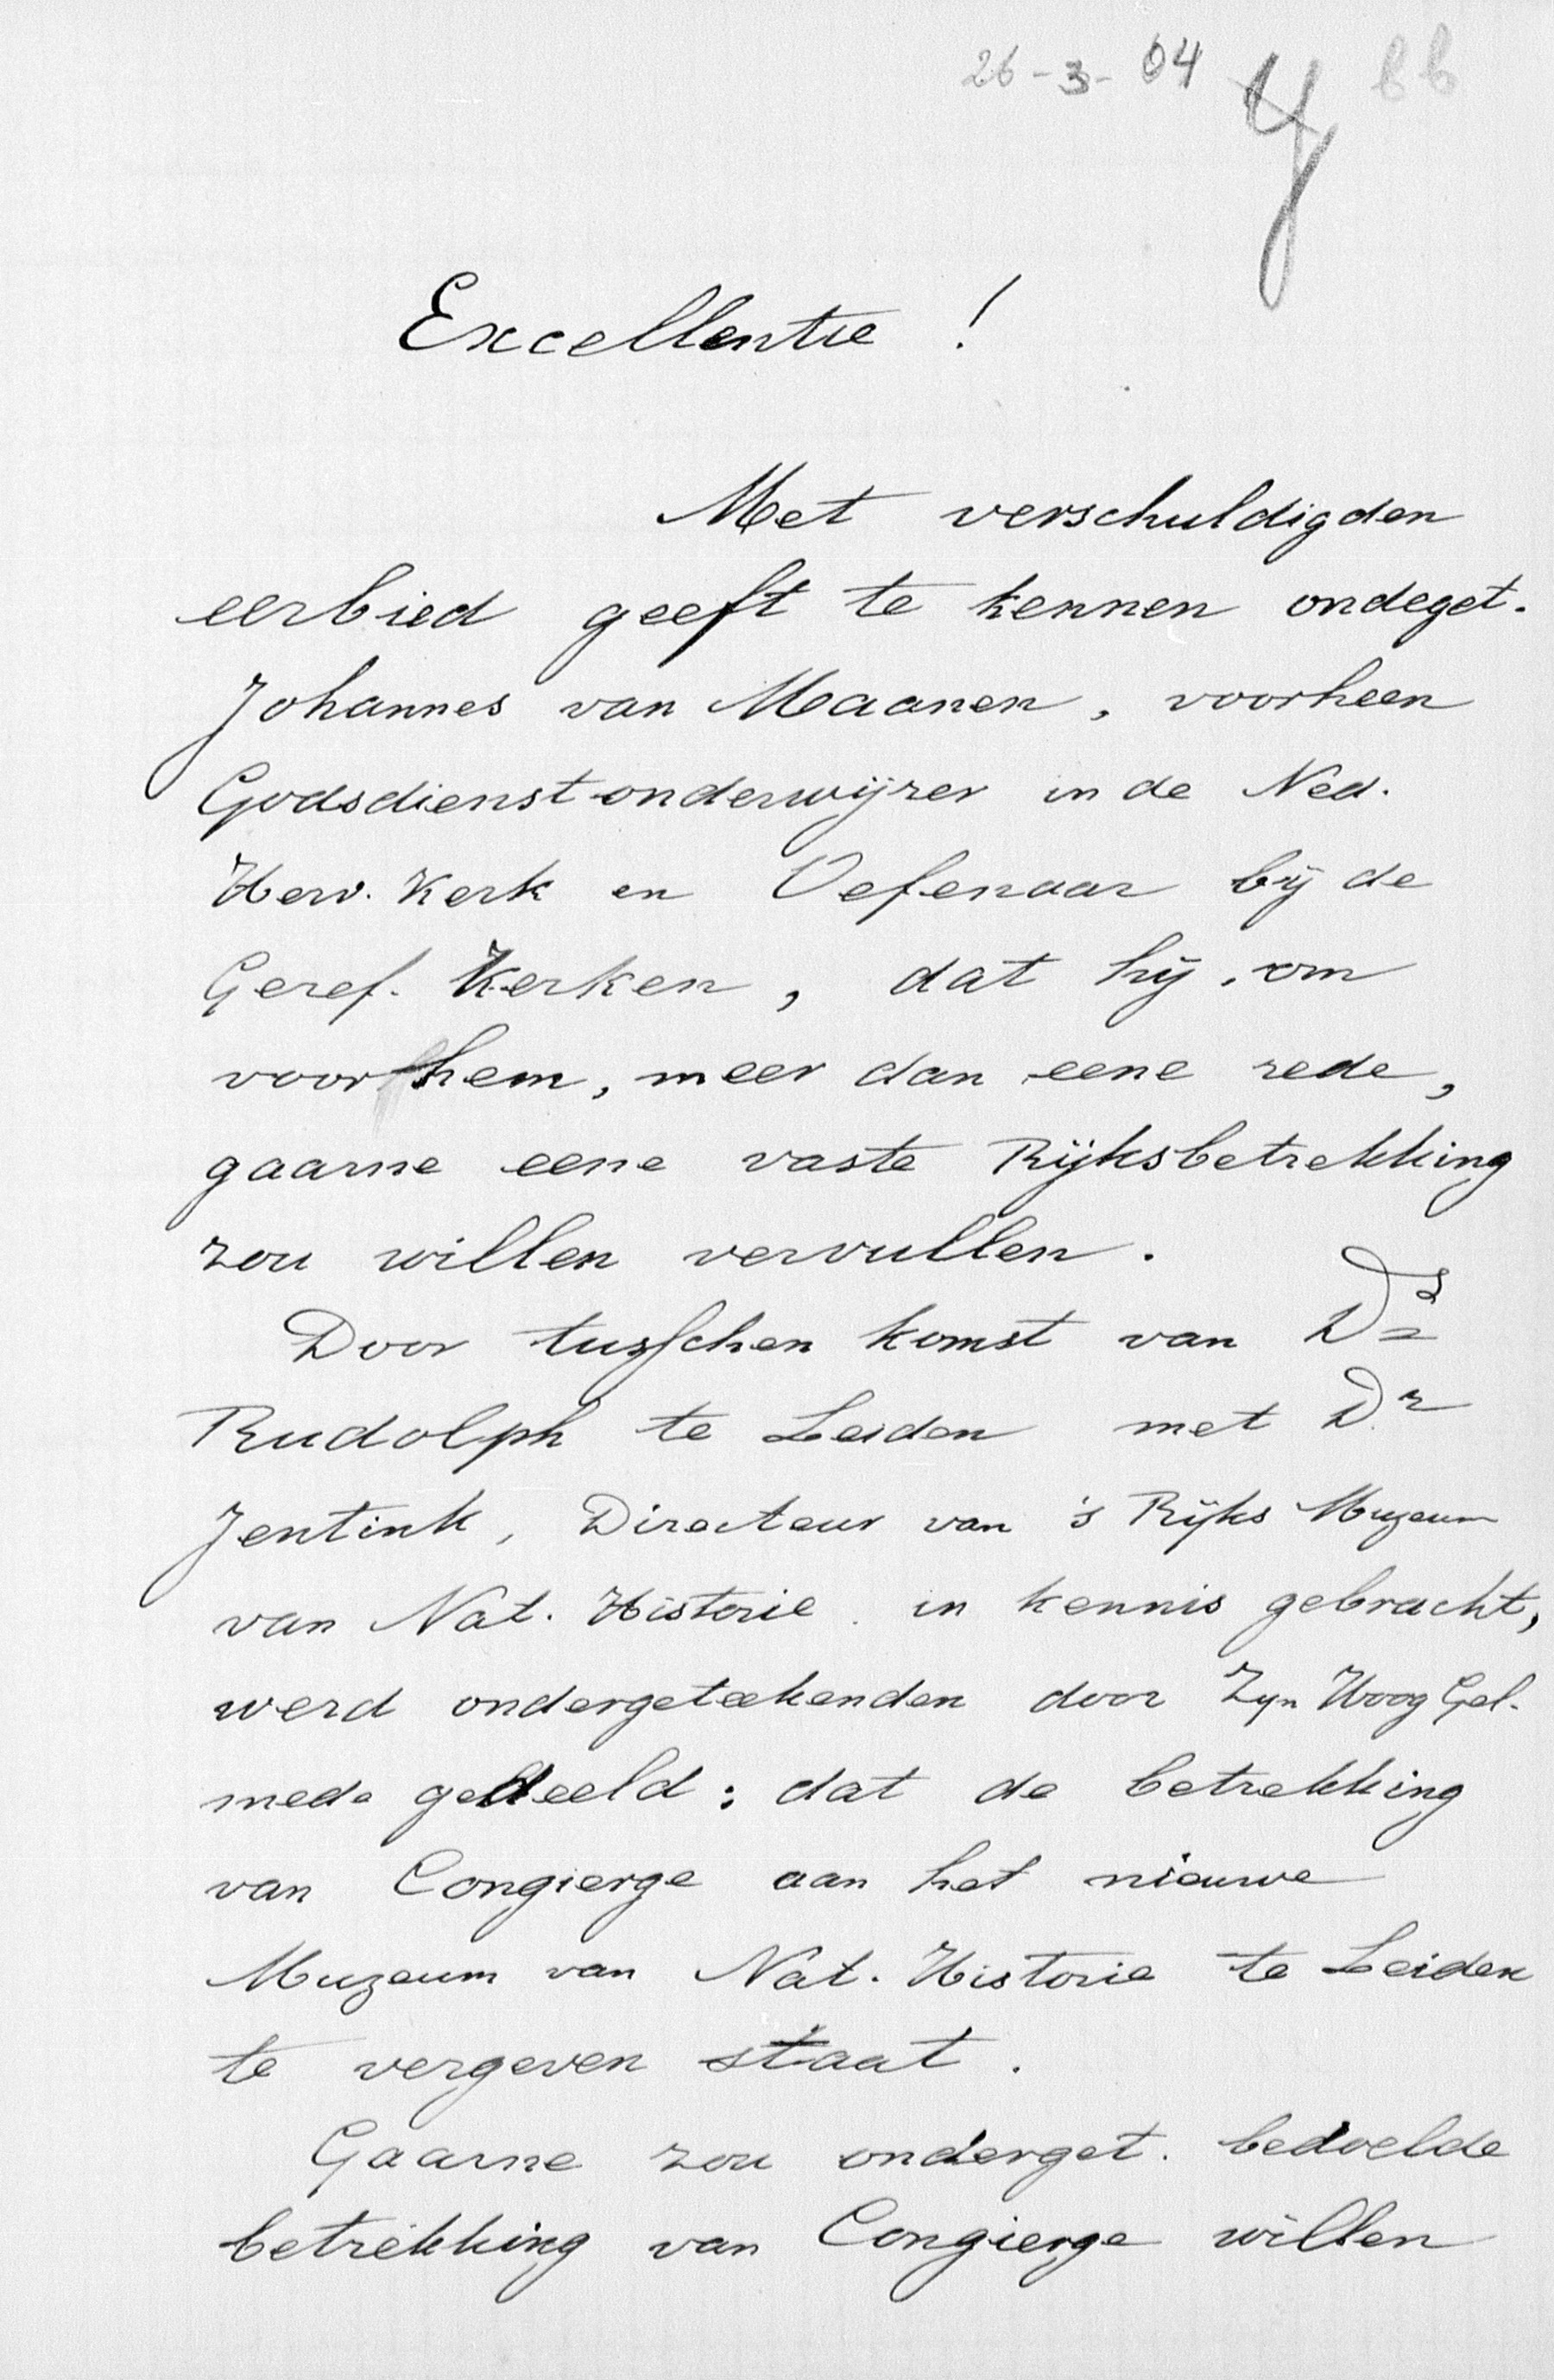 26-3-04 bb
Excellentie !
Met verschuldigden
eerbied geeft te kennen ondeget.
Johannes van Maanen, voorheen
Godsdienstonderwijzer in de Ned.
Herv. Kerk en Oefenaar bij de
Geref. Kerken, dat hij, om
voor hem, meer dan eene rede,
gaarne eene vaste Rijksbetrekking
zou willen vervullen.
Door tusschen komst van Ds
Rudolph te Leiden met Dr
Jentink, Directeur van 's Rijks Muzeum
van Nat. Historie in kennis gebracht,
werd ondergeteekenden door Zyn Hoog Gel.
mede gedeeld: dat de betrekking
van Congierge aan het nieuwe
Muzeum van Nat. Historie te Leiden
te vergeven staat.
Gaarne zou onderget. bedoelde
betrekking van Congierge willen